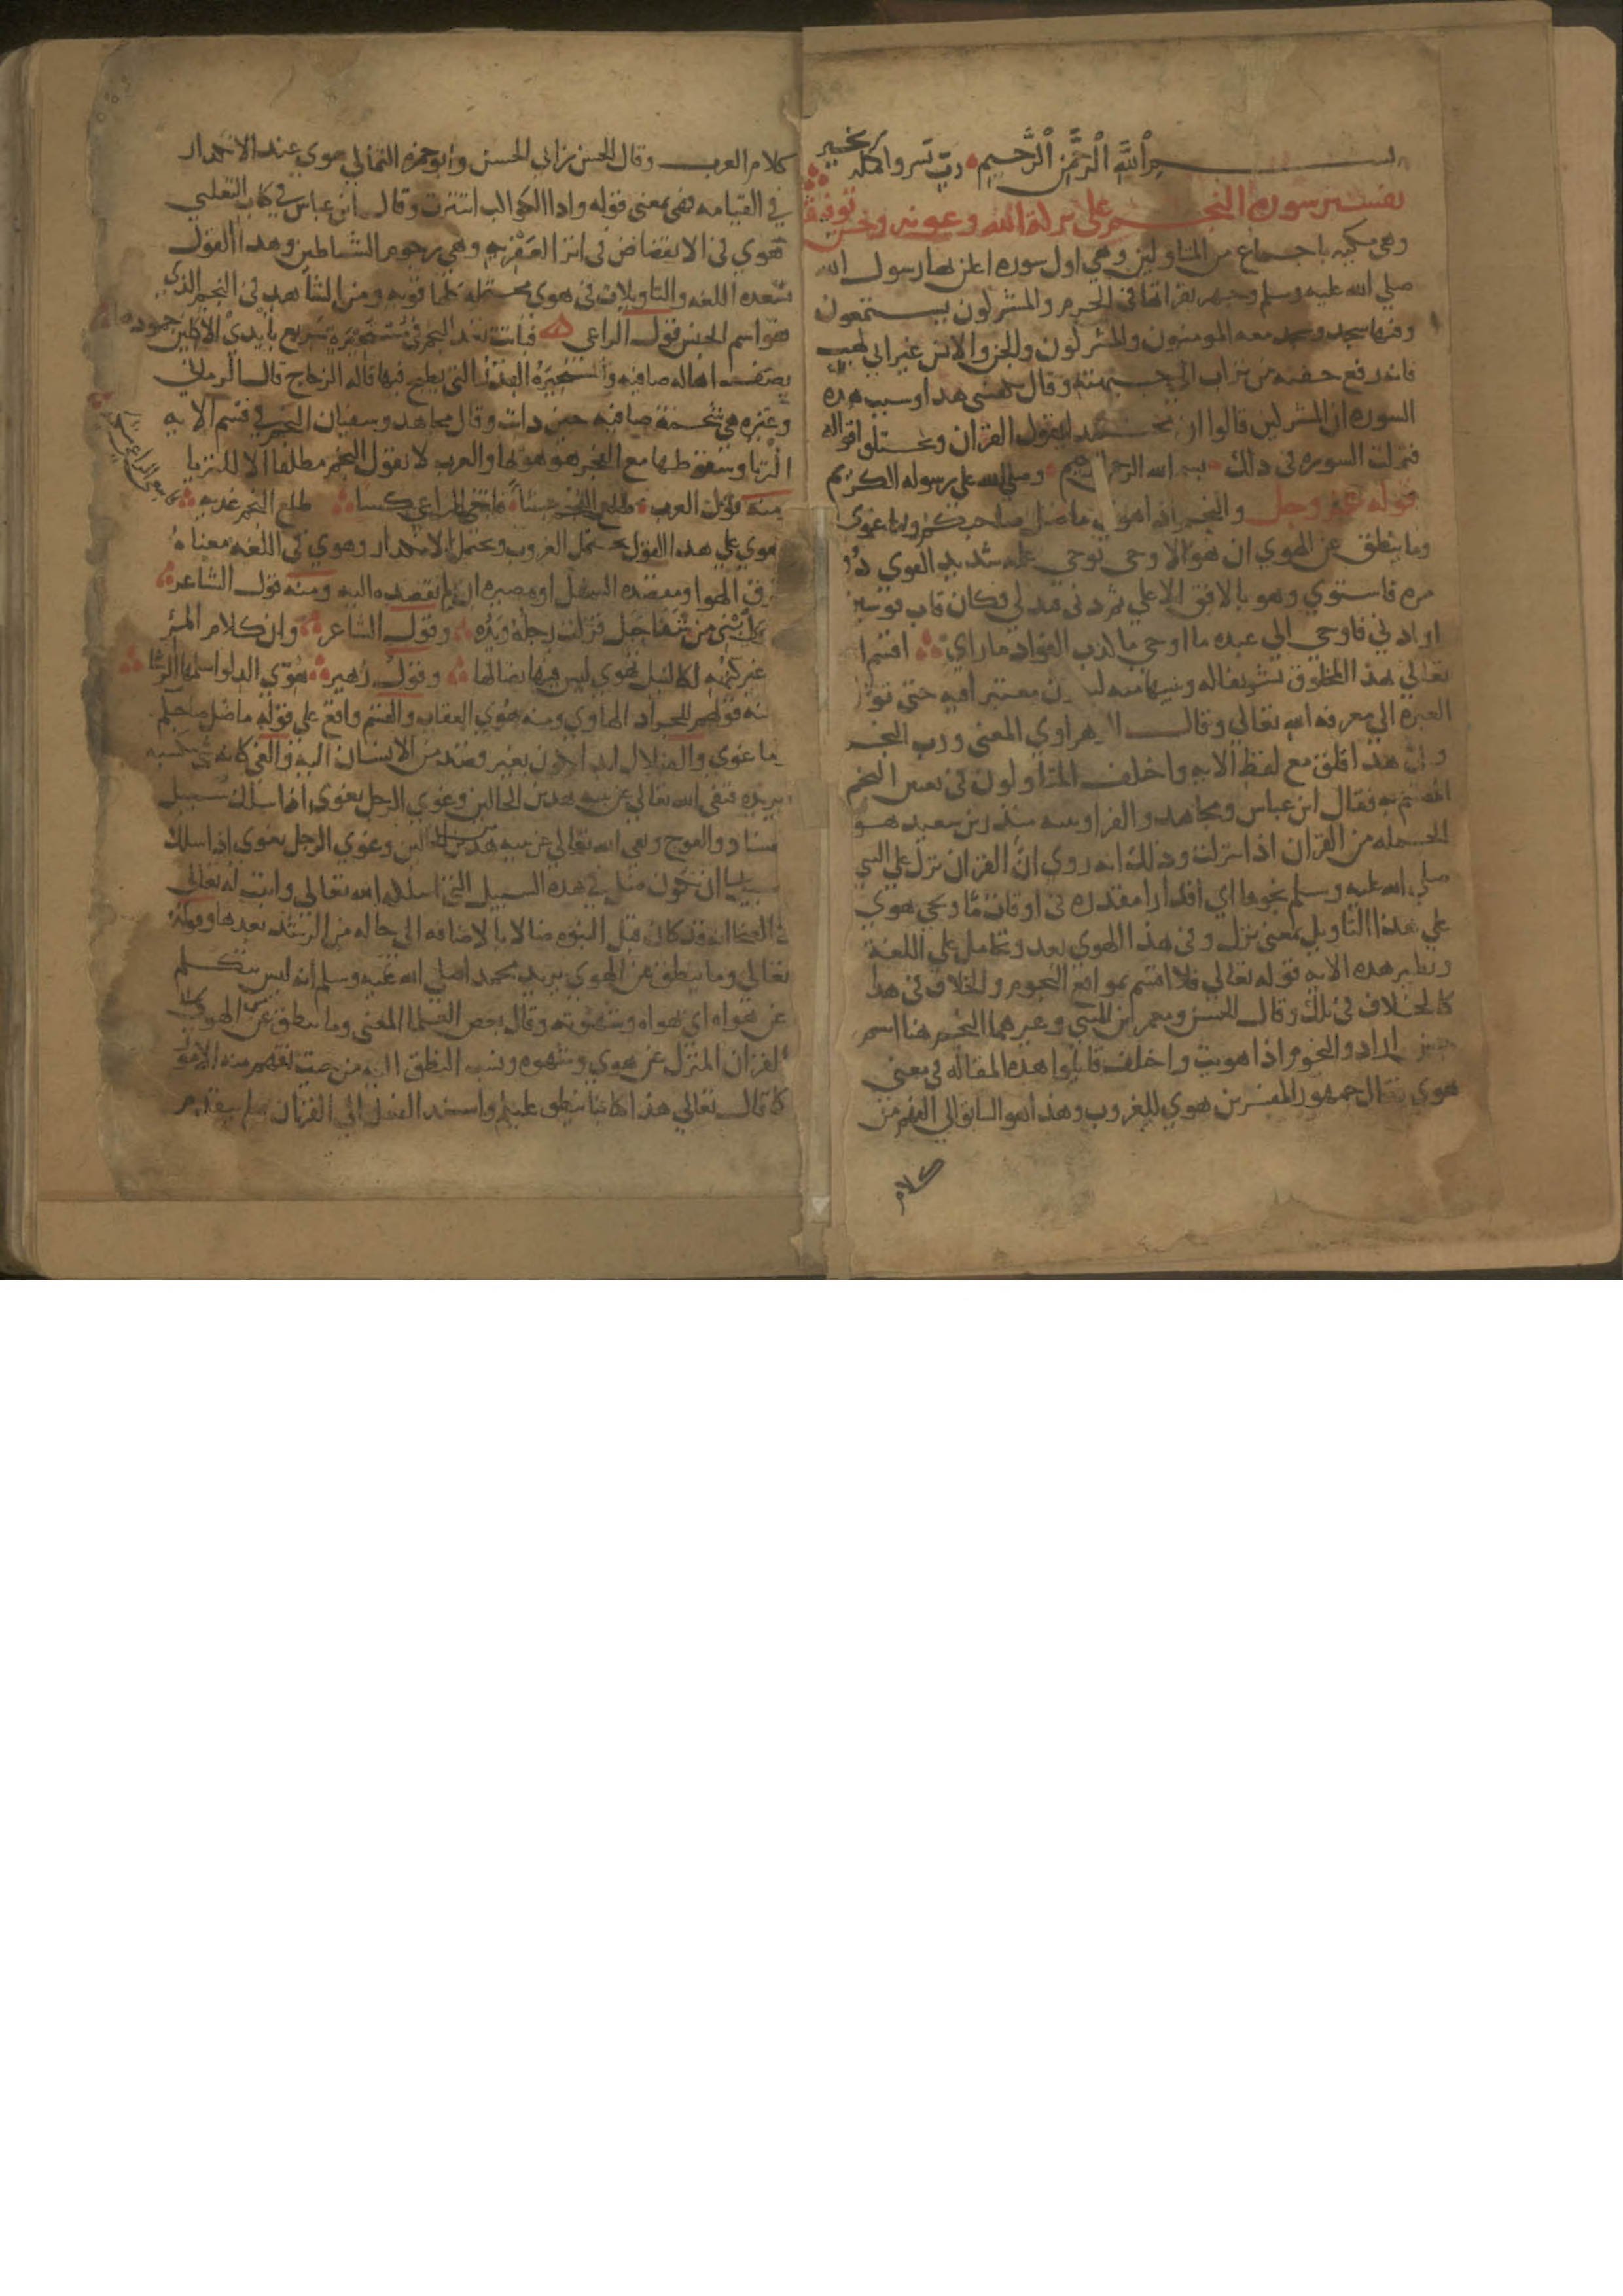 بسم الله الرحمن الرحيم رب يسر واكمله بخير
تفسير سورة النجم علي بركة الله وعونه وحسن توفيقه
وهي مكيه باجماع من المتاولين وهي اول سوره اعلن بها رسول الله
صلي الله عليه وسلم وجهر بقراتها في الحرم والمشركون يستمعون
وفيها سجد وسجد معه المومنون والمشركون والجن والانس غير ابي لهب
فانه رفع حفنة من تراب الي جبهته وقال يكفيني هذا وسبب هذه
السوره ان المشركين قالوا ان محمدا يتقول القران ويختلق اقواله
فنزلت السوره في ذلك بسم الله الرحمن الرحيم وصلي الله علي رسوله الكريم
قوله عز وجل والنجم اذا هوي ما ضل صاحبكم وما غوي
وما ينطق عن الهوي ان هو الا وحي يوحي علمه شديد القوي ذو
مره فاستوي وهو بالافق الاعلي ثم دني فتدلي فكان قاب قوسين
او ادني فاوحي الي عبده ما اوحي ما كذب الفواد ما راي اقسم الله
تعالي بهذا المخلوق تشريفا له وتنبيها منه ليكون معتبرا فيه حتي تول
العبره الي معرفه الله تعالي وقال الزهراوي المعني ورب النجم
وفي هذا قلق مع لفظ الايه واختلف المتاولون في تعيين النجم
المقسم به فقال ابن عباس ومجاهد والفرا وبينه منذر بن سعيد هو
الجمله من القران اذا نزلت وذلك انه روي ان القران نزل علي النبي
صلي الله عليه وسلم نجوما اي اقدارا مقدره في اوقات ما ويجي هوي
علي هذا التاويل بمعني نزل وفي هذا الهوي بعد وتحامل علي اللغة
ونظير هذه الايه قوله تعالي فلا اقسم بمواقع النجوم والخلاف في هذا
كالخلاف في تلك وقال الحسن ومعمر ابن المثني وغيرهما النجم هنا اسم
جنس اراد والنجوم اذا هويت واختلف قايلوا هذه المقاله في معني
هوي فقال جمهور المفسرين هوي للغروب وهذا هو السابق الي الفهم من
كلام
كلام العرب وقال الحسن بن ابي الحسن وابو حمزه الثمالي هوي عند الانكدار
في القيامه فهي بمعني قوله واذا الكواكب انتثرت وقال ابن عباس في كتاب الثعلبي
هوي في الانقضاض في اثر العفريه وهي رجوم الشياطين وهذا القول
تسعده اللغه والتاويلات في هوي محتمله كلها قويه ومن الشاهد في النجم الذي
هو اسم الجنس قول الراعي فباتت تعد النجم في مستحيرة سريع بايدي الاكلين جمودها
يصف اهاله صافيه والمستحيرة القدر التي يطبخ فيها قاله الزجاج قال الرماني
وغيره هي شحمة صافيه حين ذابت وقال مجاهد وسفيان النجم في قسم الايه
الثريا وسقوطها مع الفجر هو هويها والعرب لا تقول النجم مطلقا الا للثريا
ومنه قول العرب طلع النجم عشاً فابتغي الراعي كسا طلع النجم غديه
هوي علي هذا القول يحتمل الغروب ويحتمل الانكدار وهوي في اللغه معناه
خرق الهوا ومقصده السفل او مصيره ان لم يقصده اليه ومنه قول الشاعر
من شفا جبل فزلت رجله ويده وقول الشاعر وان كلام المرء
غير كنهه لكالنبل تهوي ليس فيها نصالها وقول زهير هوي الدلو اسلمها الرشا
ومنه قولهم للجراد الهاوي ومنه هوي العقاب والقسم واقع علي قوله ما ضل صاحبكم
وما غوي والضلال ابدا يكون بغير قصد من الانسان اليه والغي كانه شي يكتسبه
ويريده فنفي الله تعالي عن نبيه هذين الحالين وغوي الرجل يغوي اذا سلك سبيل
الفساد والعوج ونفي الله تعالي عن نبيه هذين الحالين وغوي الرجل يغوي اذا سلك
ان يكون ضل في هذه السبيل التي اسلكه الله تعالي واثبت له تعالي
في الضحا انه قد كان قبل النبوه ضالا بالاضافه الي حاله من الرشد بعدها وقوله
تعالي وما ينطق عن الهوي يريد محمدا صلي الله عليه وسلم انه ليس يتكلم
عن هواه اي بهواه وشهوته وقال بعض العلما المعني وما ينطق عن الهوي
القران المنزل عن هوي وشهوه ونسب النطق اليه من حيث تفهم منه الامور
كما قال تعالي هذا كتابنا ينطق عليكم واسند الفعل الي القران ولم يتقدم